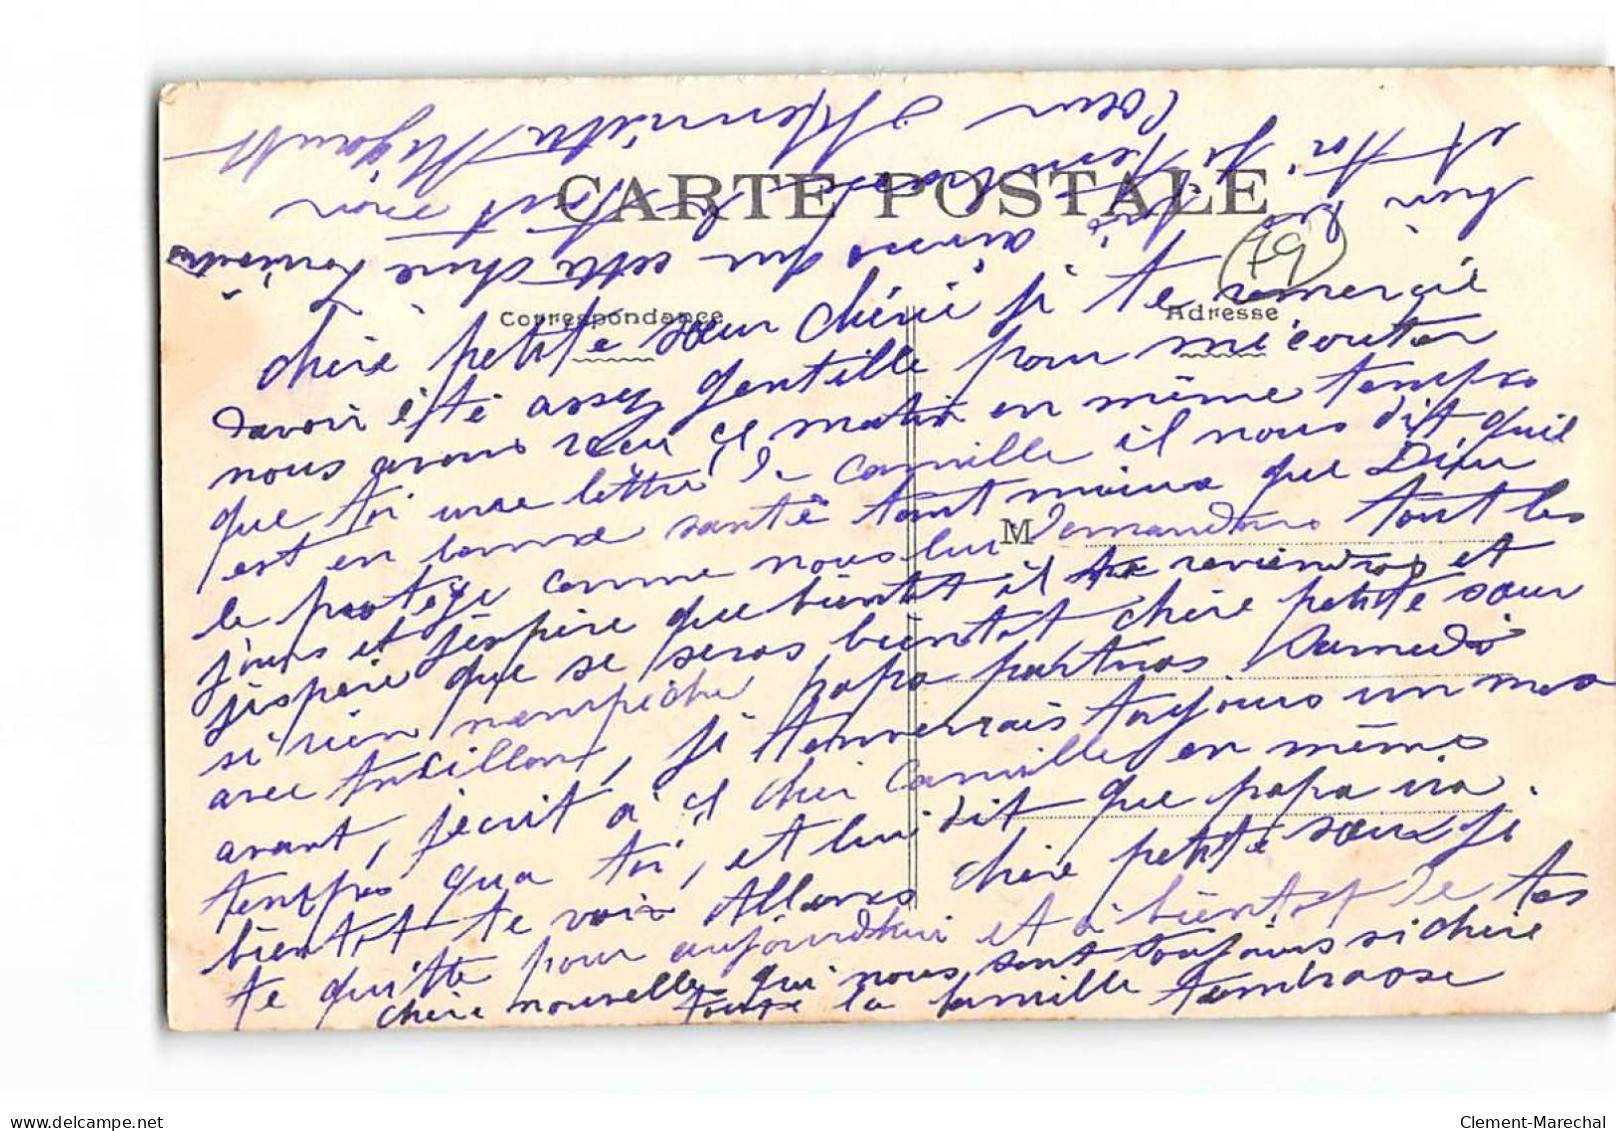 CARTE POSTALE
Correspondance
Adresse
79
M
chère petite sœur chérie je te remercie
davoir été assez gentille pour mécouter
nous avons reçu ce matin en même temps
que toi une lettre de Camille il nous dit quil
est en bonne santé tant mieux que Dieu
le protège comme nous lui demandons tout les
jours et jéspère que bientôt il reviendras et
jéspère que se seras bientot chère petite sœur
si rien nempêche papa partras Samedi
avec, je tenverrais toujours un mos
avant, jecrit a ce cher Camille en même
temps qua toi, et lui dit que papa ira
bientot te voir Allons chère petite sœur je
te quitte pour aujourdhui et a bientot de tes
chère nouvelles qui nous sont toujours si chère
toute la famille tembrasse
bien
ainsi que cette chère
et toi je
voir
cœur Henriette